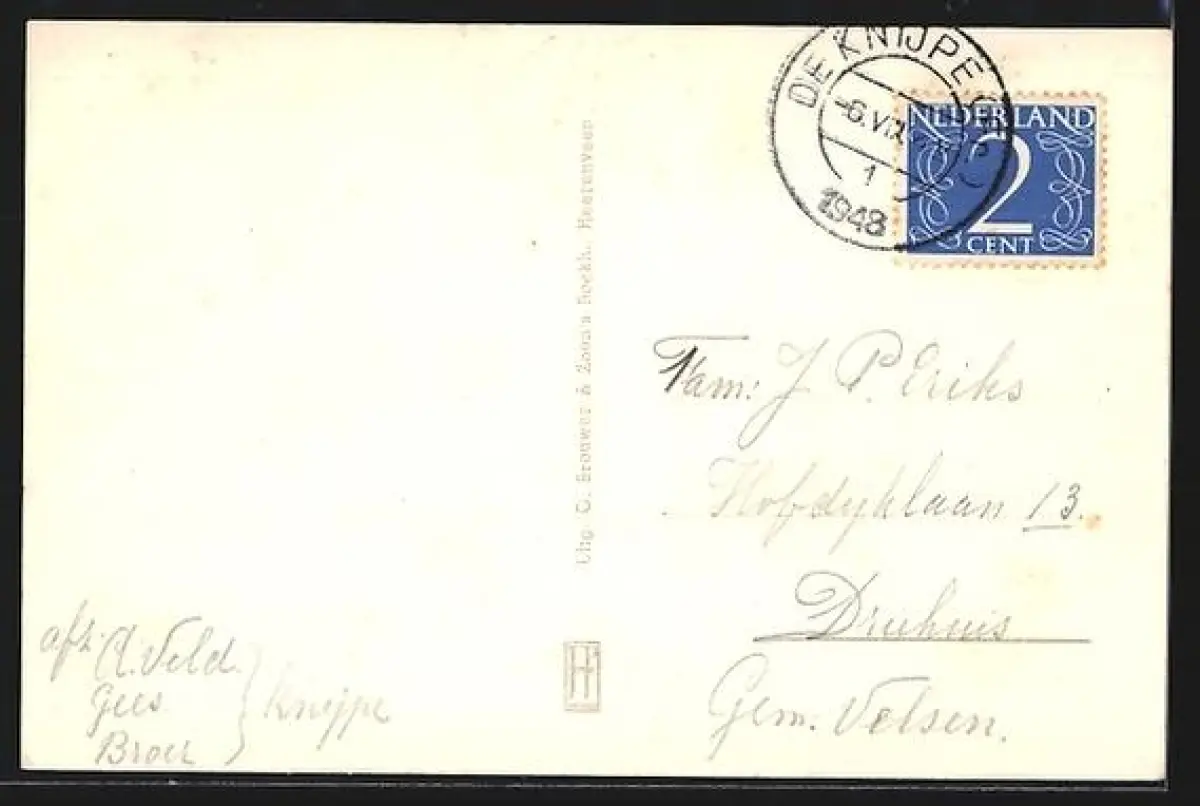 DE KNIJPE
-6.VII
1
1948
NEDERLAND
2
CENT
Uitg. O. Brouwer & Zoon's Boekh. Heerenveen
Fam: J P. Eriks
Hofdyklaan 13.
Driehuis
Gem. Velsen.
afz. A. Veld.
Gees
Broer
Knijpe
H